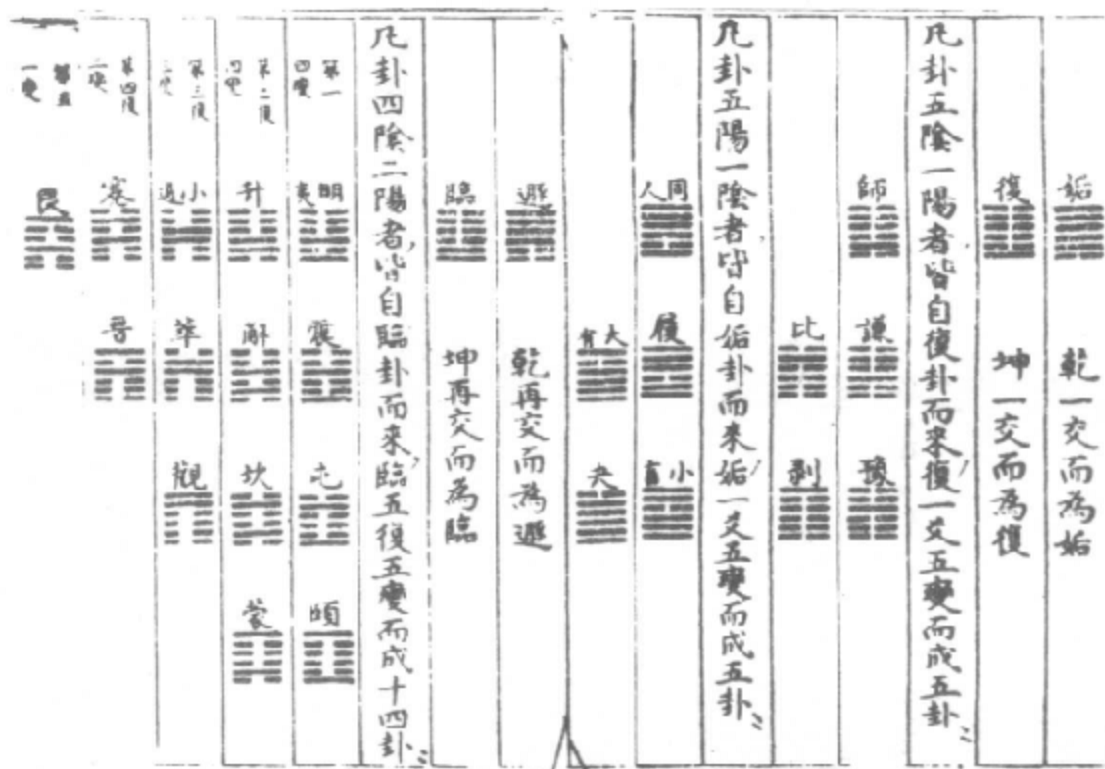 姤 乾一交而為姤
復 坤一交而為復
凡卦五陰一陽者皆自復卦而来復一爻五變而成五卦
師 謙 豫
比 剥
凡卦五陽一陰者皆自姤卦而来姤一爻五變而成五卦
同人 履 小畜
大有 夬
遯 乾再交而為遯
臨 坤再交而為臨
凡卦四陰二陽者皆自臨卦而来臨五復五變而成十四卦
第一四變 明夷 震 屯 頤
第二復四變 升 解 坎 蒙
第三復三變 小過 萃 觀
第四復二變 蹇 晋
第五一變 艮